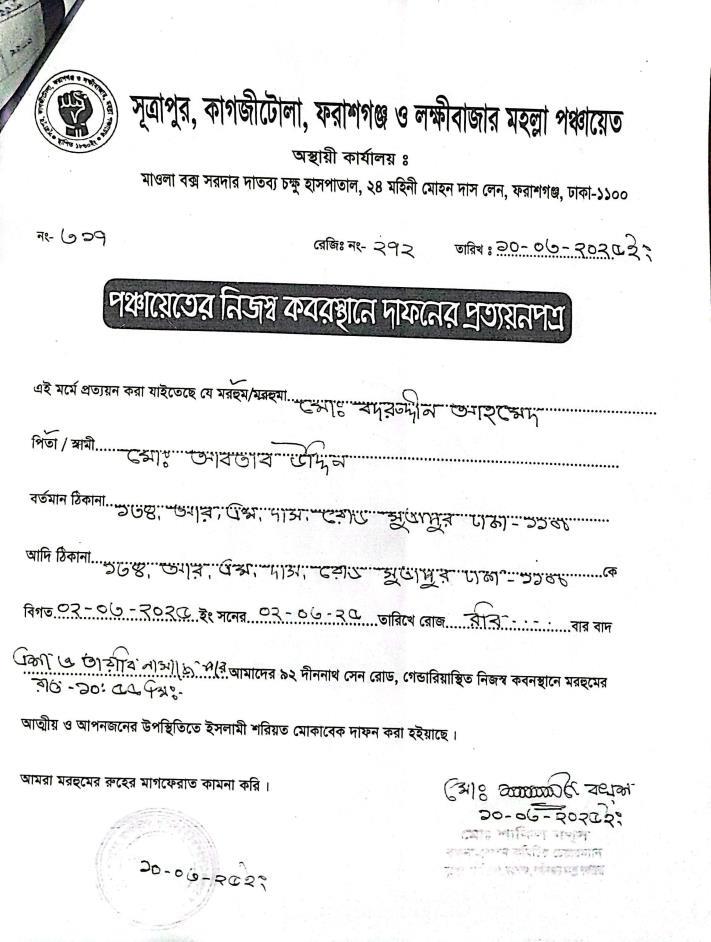 সূত্রাপুর, কাগজীটোলা, ফরাশগঞ্জ ও লক্ষীবাজার মহল্লা পঞ্চায়েত
অস্থায়ী কার্যালয় ঃ
মাওলা বক্স সরদার দাতব্য চক্ষু হাসপাতাল, ২৪ মহিনী মোহন দাস লেন, ফরাশগঞ্জ, ঢাকা-১১০০
নং- ৬১৭ রেজিঃ নং- ২৭২ তারিখ ঃ ১০-০৬-২০২৫ইং
পঞ্চায়েতের নিজস্ব কবরস্থানে দাফনের প্রত্যয়নপত্র
এই মর্মে প্রত্যয়ন করা যাইতেছে যে মরহুম/মরহুমা মোঃ বদরুদ্দীন আহম্মেদ
পিতা / স্বামী মোঃ আবতাব উদ্দিন
বর্তমান ঠিকানা আর, এম, দাস, রোড সূত্রাপুর ঢাকা-১১০০
আদি ঠিকানা আর, এম, দাস, রোড সূত্রাপুর ঢাকা-১১০০ কে
বিগত ০২-০৬-২০২৫ ইং সনের ০২-০৬-২৫ তারিখে রোজ রবি বার বাদ
এশা ও তারাবি নামাজের পর আমাদের ৯২ দীননাথ সেন রোড, গেন্ডারিয়াস্থিত নিজস্ব কবনস্থানে মরহুমের
রাত -১০ঃ ৫৫ মিঃ-
আত্মীয় ও আপনজনের উপস্থিতিতে ইসলামী শরিয়ত মোকাবেক দাফন করা হইয়াছে ।
আমরা মরহুমের রুহের মাগফেরাত কামনা করি ।
মোঃ
১০-০৬-২০২৫ইং
১০-০৬-২৫ইং